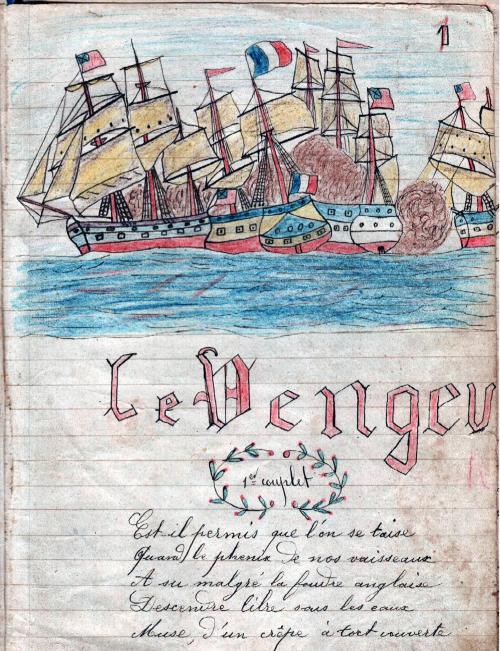 1
Le Vengeu
1er couplet
Est-il permis que l'on se taise
Quand le phenix de nos vaisseaux
A su malgré la foudre anglaise
Descendre libre sous les eaux
Muse, d'un crêpe à tort couverte